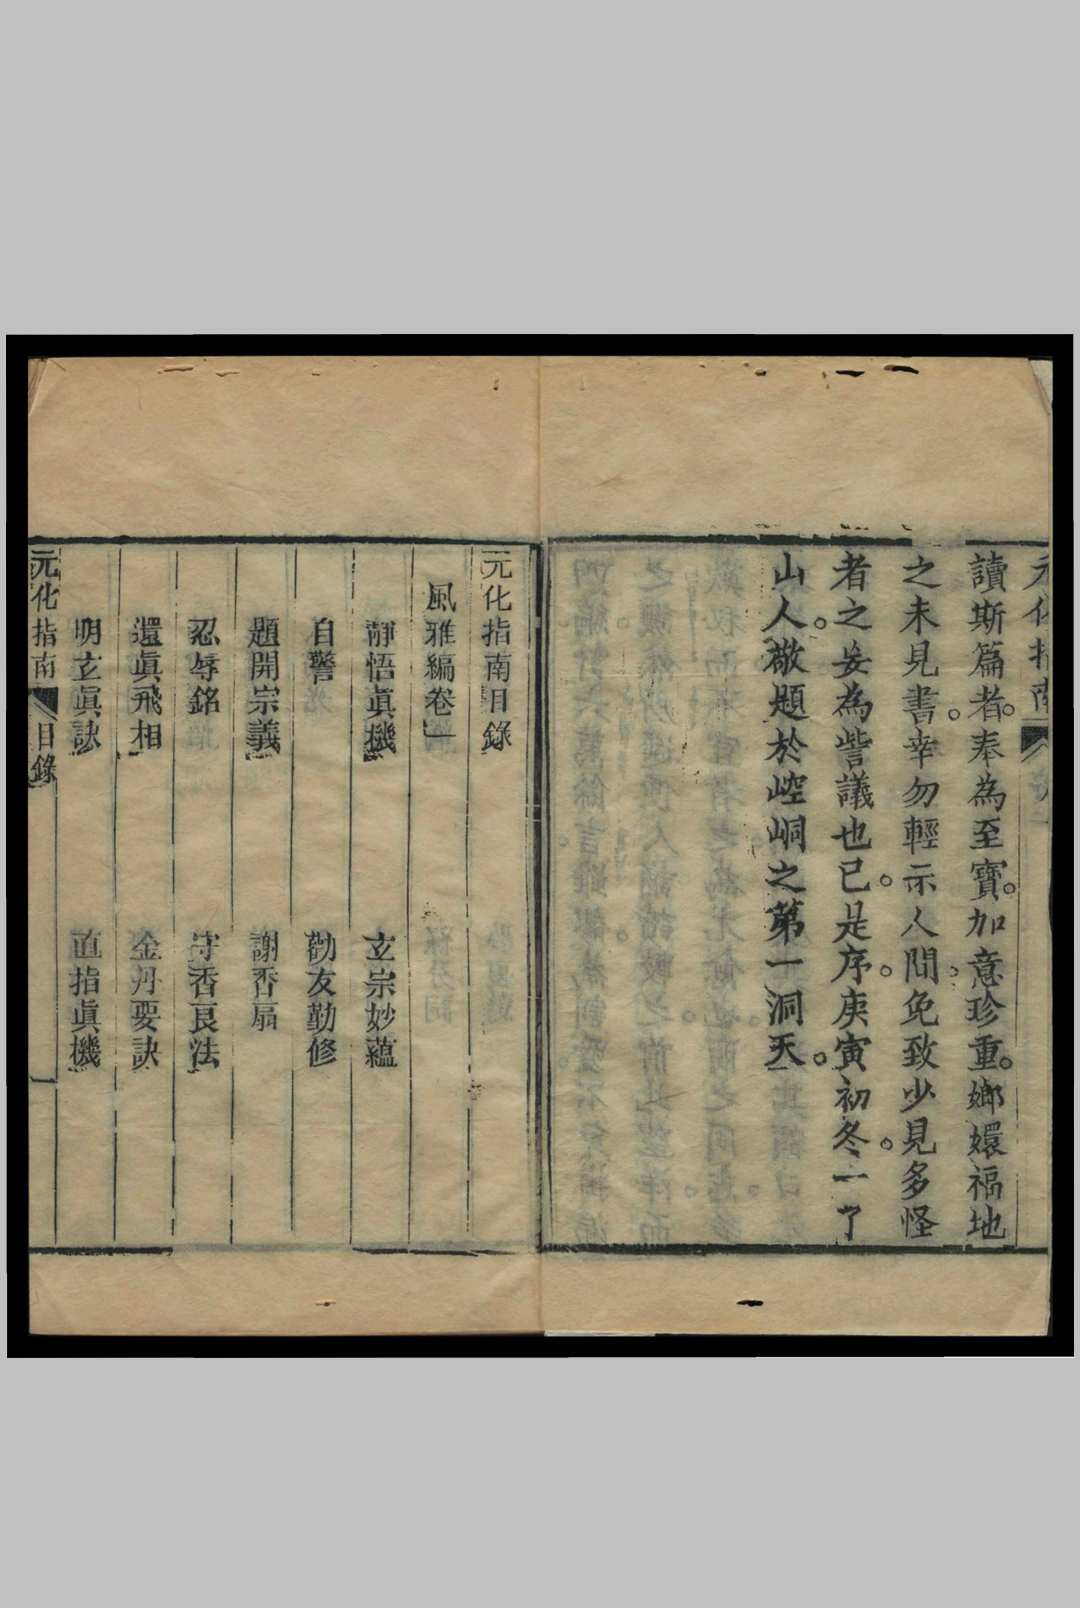 讀斯篇者。奉為至寶。加意珍重。嫏嬛福地
之未見書。幸勿輕示人間。免致少見多怪
者之妄為訾議也已。是序。庚寅初冬。一了
山人。敬題於崆峒之第一洞天。
元化指南目錄
風雅編卷一
靜悟眞機 玄宗妙蘊
自警 勸友勤修
題開宗義 謝香扇
忍辱銘 守香良法
還眞飛相 金丹要訣
明玄眞訣 直指眞機
元化指南 目錄